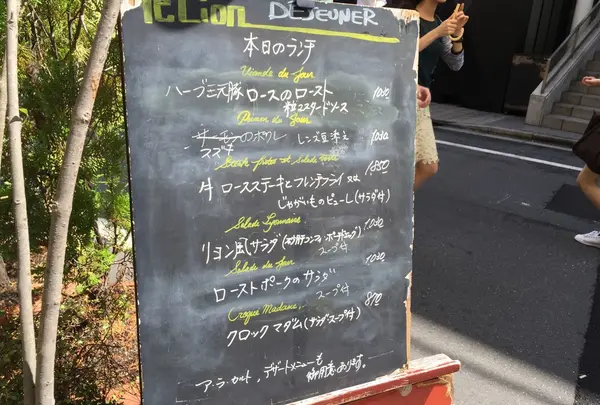 le Lion DÉJEUNER
本日のランチ
Viande du Jour
ハーブ三元豚ロースのロースト 1050
粒マスタードソース
Poisson du Jour
サーモンのポワレ レンズ豆添え 1050
スズキ
Steak frites et Salade verte
牛ロースステーキとフレンチフライ又は 1850
じゃがいものピューレ(サラダ付)
Salade Lyonnaise
リヨン風サラダ(砂肝コンフィ、ポーチドエッグ) 1050
スープ付
Salade du Jour
ローストポークのサラダ 1050
スープ付
Croque Madame
クロックマダム(サラダスープ付) 870
ア・ラ・カルト、デザートメニューも
御用意あります。